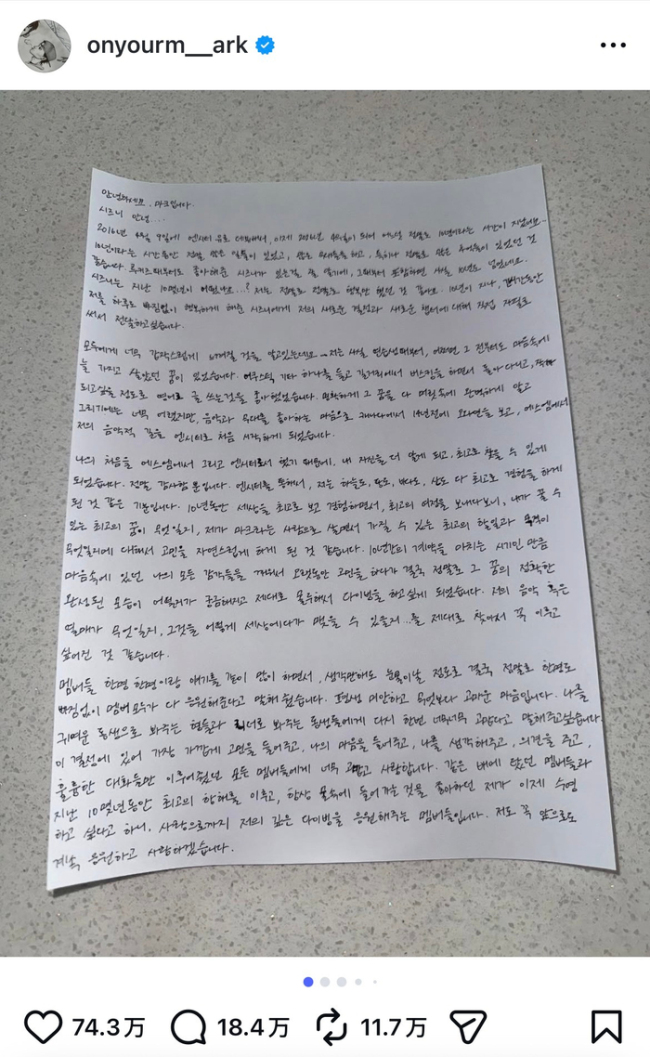 onyourm__ark
안녕하세요. 마크입니다.
시즈니 안녕....
2016년 4월 9일에 엔시티 유로 데뷔해서, 이제 2026년 4월이 되어 어느덧 정말로 10년이라는 시간이 지났네요..
10년이라는 시간동안 정말 많은 일들이 있었고, 많은 무대들을 하고, 특히나 정말로 많은 추억들이 있었던 것
같습니다. 루키즈 때부터도 좋아해준 시즈니가 있는걸 잘 알기에, 그때부터 포함하면 저는 10년도 넘었네요.
시즈니는 지난 10몇년이 어땠나요...? 저는 정말로 정말로 행복만 했던 것 같아요. 10년이 지나, 그동안
저를 하루도 빠짐없이 행복하게 해준 시즈니에게 저의 새로운 결정과 새로운 챕터에 대해 직접 자필로
써서 전달하고싶습니다.
모두에게 너무 갑작스럽게 느껴질 것을 알고있는데요.. 저는 사실 연습생때부터, 어쩌면 그 전부터도 마음속에
늘 가지고 살았던 꿈이 있었습니다. 어쿠스틱 기타 하나를 들고 길거리에서 버스킹을 하면서 돌아다니고,
되고싶을 정도로 영어로 글 쓰는것을 좋아했었습니다. 막연하게 그 꿈을 다 머릿속에 완벽하게 알고
그리기에는 너무 어렸지만, 음악과 무대를 좋아하는 마음으로 캐나다에서 14년전에 오디션을 보고, 에스엠에서
저의 음악적 길을 엔시티로 처음 시작하게 되었습니다.
나의 처음을 에스엠에서 그리고 엔시티로서 했기 때문에, 내 자신을 더 알게 되고, 최고로 찾을 수 있게
되었습니다. 정말 감사함 뿐입니다. 엔시티를 통해서, 저는 하늘도, 땅도, 바다도, 산도 다 최고로 경험을 하게
된 것 같은 기분입니다. 10년동안 세상을 최고로 보고 경험하면서, 최고의 여정을 보내다보니, 내가 꿀 수
있는 최고의 꿈이 무엇일지, 제가 마크라는 사람으로 살면서 가질 수 있는 최고의 힘일과 목적이
무엇일지에 대해서 고민을 자연스럽게 하게 된 것 같습니다. 10년간의 계약을 마치는 시기인 만큼
마음속에 있던 나의 모든 감각들을 깨워서 오랫동안 고민을 하다가 결국 정말로 그 꿈의 정확한
완성된 모습이 어떨지가 궁금해지고 제대로 몰두해서 다이빙을 하고싶게 되었습니다. 저의 음악 혹은
열매가 무엇일지, 그것을 어떻게 세상에다가 맺을 수 있을지..를 제대로 찾아서 꼭 이루고
싶어진 것 같습니다.
멤버들 한명 한명이랑 얘기를 같이 많이 하면서, 생각만해도 눈물이날 정도로 결국 정말로 한명도
빠짐없이 멤버 모두가 다 응원해준다고 말해줬습니다. 평생 미안하고 무엇보다 고마운 마음입니다. 나를
귀여운 동생으로 봐주는 형들과 리더로 봐주는 동생들에게 다시 한번 너무너무 고맙다고 말해주고싶습니다.
이 결정에 있어 가장 가깝게 고민을 들어주고, 나의 마음을 들어주고, 나를 생각해주고, 의견을 주고,
훌륭한 대화들만 이루어줬던 모든 멤버들에게 너무 고맙고 사랑합니다. 같은 배에 탔던 멤버들과
지난 10몇년동안 최고의 항해를 이루고, 항상 물속에 들어가는 것을 좋아하던 제가 이제 수영
하고 싶다고 하니, 사랑으로까지 저의 깊은 다이빙을 응원해주는 멤버들입니다. 저도 꼭 앞으로도
계속 응원하고 사랑하겠습니다.
74.3万 18.4万 11.7万